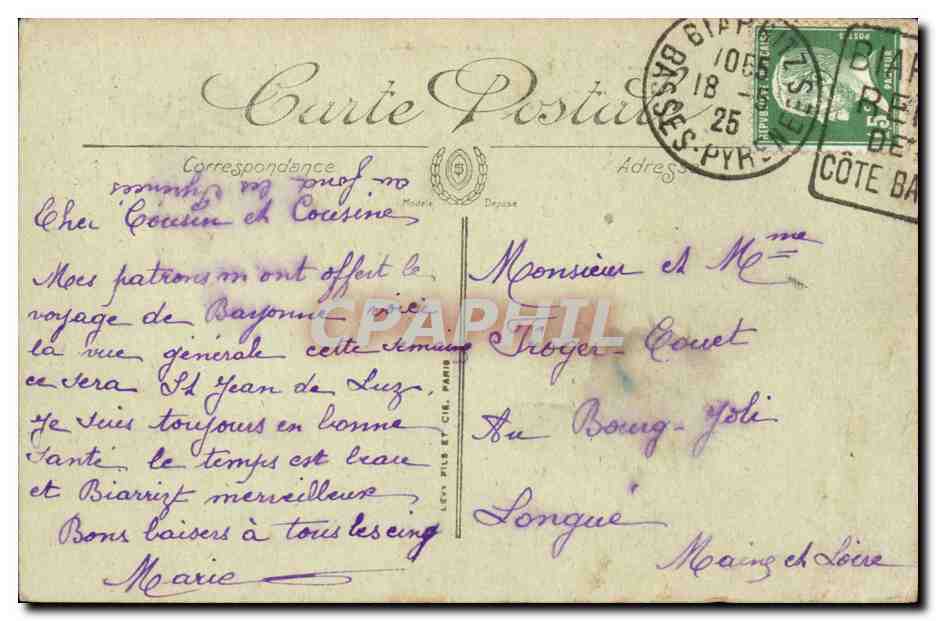 Carte Postale
Correspondance
Adresse
au fond les Pyrénées
Cher Cousin et Cousine
Modèle Déposé
Mes patrons m'ont offert le
voyage de Bayonne voici
la vue générale cette semaine
ce sera St Jean de Luz.
Je suis toujours en bonne
santé le temps est beau
et Biarrizt merveilleux
Bons baisers à tous les cinq
Marie
LÉVY FILS ET CIE, PARIS
Monsieur et Mme
Troger-Couet
Au Bourg-Joli
Longué
Maine et Loire
BIARRITZ
18 -
25
BASSES-PYRENEES
POSTES
REPUBLIQUE FRANCAISE
PASTEUR
15
BIAR
CÔTE BA
CPAPHIL